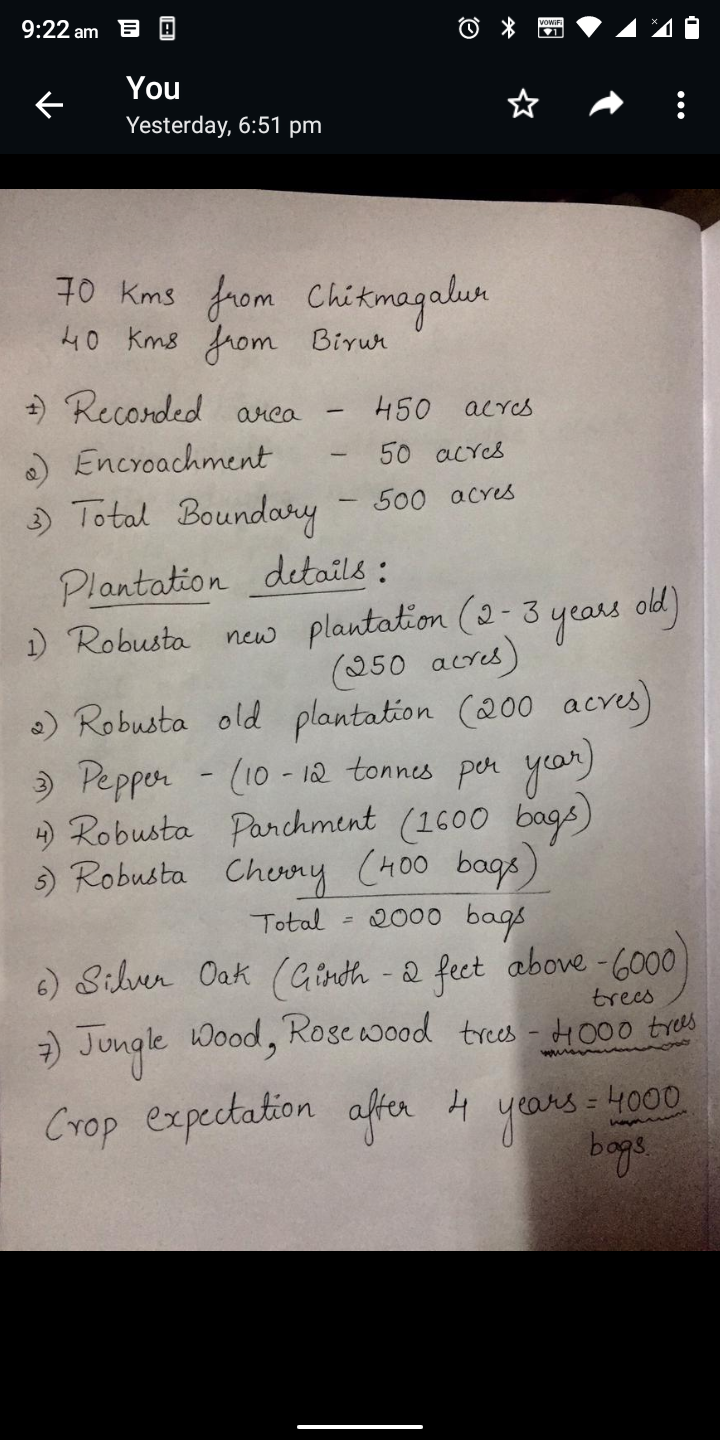 9:22 am
VoWiFi 1
You
Yesterday, 6:51 pm
70 Kms from Chikmagalur
40 Kms from Birur
1) Recorded area - 450 acres
2) Encroachment - 50 acres
3) Total Boundary - 500 acres
Plantation details :
1) Robusta new plantation (2-3 years old)
(250 acres)
2) Robusta old plantation (200 acres)
3) Pepper - (10-12 tonnes per year)
4) Robusta Parchment (1600 bags)
5) Robusta Cherry (400 bags)
Total = 2000 bags
6) Silver Oak (Girth - 2 feet above - 6000
trees)
7) Jungle Wood, Rosewood trees - 4000 trees
Crop expectation after 4 years = 4000
bags.